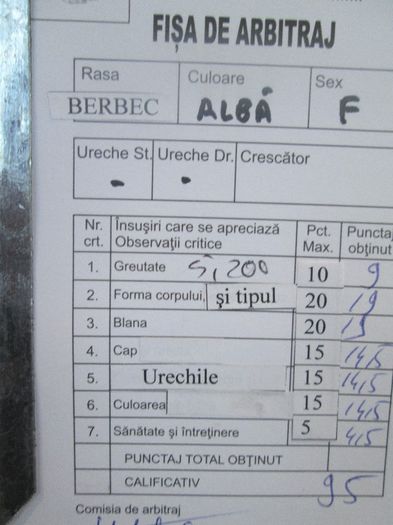 FIȘA DE ARBITRAJ
Rasa Culoare Sex
BERBEC ALBĂ F
Ureche St. Ureche Dr. Crescător
- -
Nr. crt. Însușiri care se apreciază Observații critice Pct. Max. Punctaj obținut
1. Greutate 5,200 10 9
2. Forma corpului, și tipul 20 19
3. Blana 20 19
4. Cap 15 14,5
5. Urechile 15 14,5
6. Culoarea 15 14,5
7. Sănătate și întreținere 5 4,5
PUNCTAJ TOTAL OBȚINUT
CALIFICATIV 95
Comisia de arbitraj